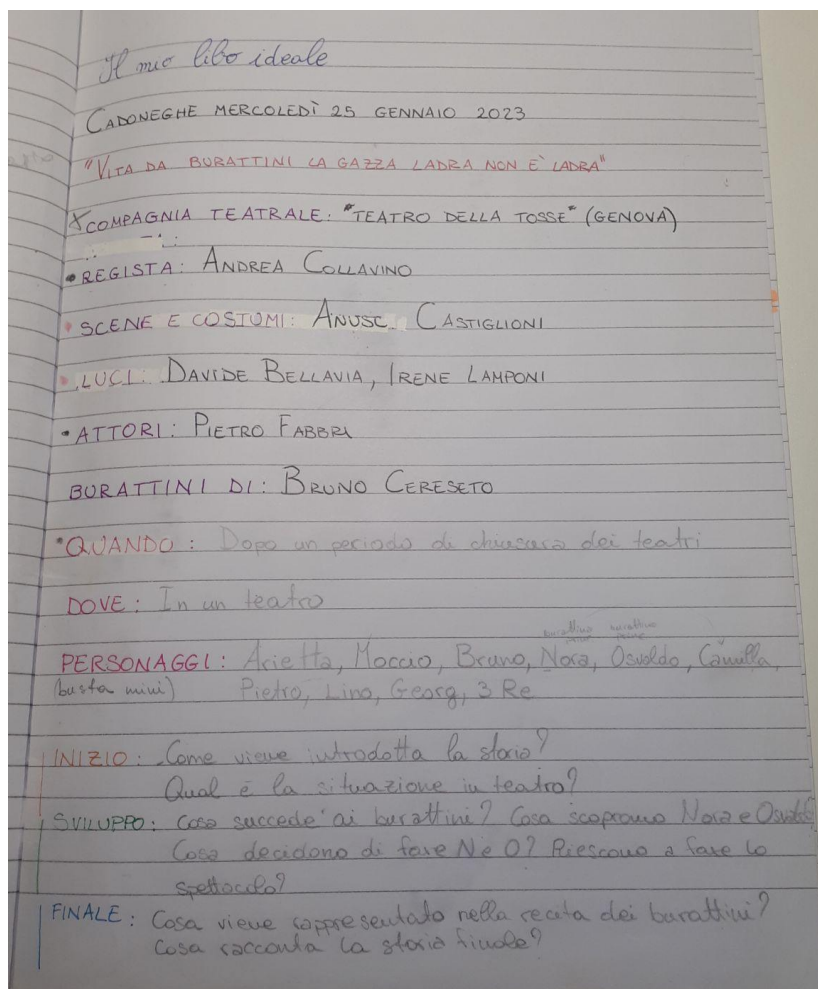 Il mio libo ideale
CADONEGHE MERCOLEDÌ 25 GENNAIO 2023
"VITA DA BURATTINI LA GAZZA LADRA NON È LADRA"
COMPAGNIA TEATRALE: "TEATRO DELLA TOSSE" (GENOVA)
• REGISTA: ANDREA COLLAVINO
• SCENE E COSTUMI: ANUSC CASTIGLIONI
• LUCI: DAVIDE BELLAVIA, IRENE LAMPONI
• ATTORI: PIETRO FABBRI
BURATTINI DI: BRUNO CERESETO
• QUANDO: Dopo un periodo di chiusura dei teatri
DOVE: In un teatro
burattino burattino
PERSONAGGI: Arietta, Moccio, Bruno, Nora, Osvaldo, Camilla,
(busta mini) Pietro, Lino, Georg, 3 Re
INIZIO: Come viene introdotta la storia?
Qual è la situazione in teatro?
SVILUPPO: Cosa succede ai burattini? Cosa scoprono Nora e Osvaldo?
Cosa decidono di fare N e O? Riescono a fare lo
spettacolo?
FINALE: Cosa viene rappresentato nella recita dei burattini?
Cosa racconta la storia finale?